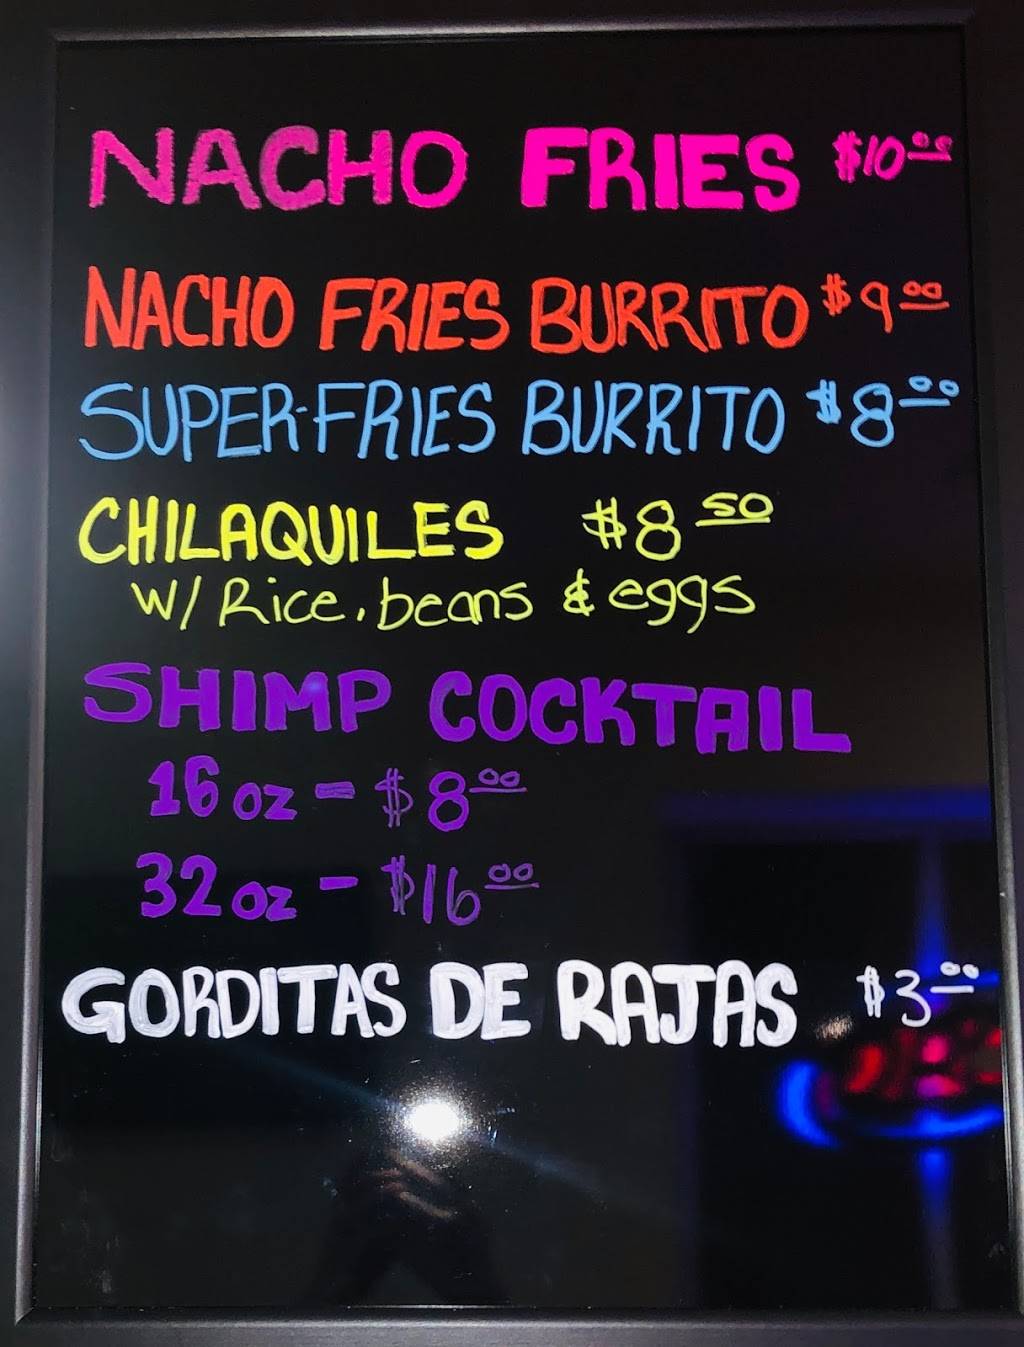 NACHO FRIES $10.00
NACHO FRIES BURRITO $9.00
SUPER-FRIES BURRITO $8.00
CHILAQUILES $8.50
W/ Rice, beans & eggs
SHIMP COCKTAIL
16 oz - $8.00
32 oz - $16.00
GORDITAS DE RAJAS $3.00